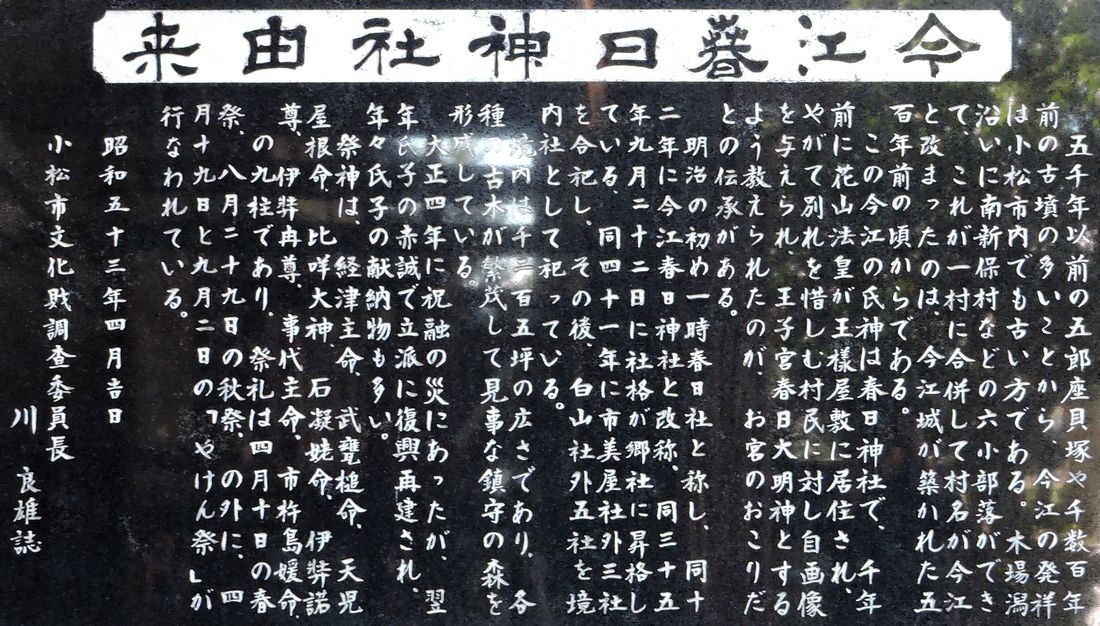 今江春日神社由来
五千年以前の五郎座貝塚や千数百年
前の古墳の多いことから、今江の発祥
は小松市内でも古い方である。木場潟
沿いに南新保村などの六小部落ができ
て、これが一村に合併して村名が今江
と改まったのは、今江城が築かれた五
百年前の頃からである。
この今江の氏神は春日神社で、千年
前に花山法皇が王様屋敷に居住され、
やがて別れを惜しむ村民に対し自画像
を与えられ、王子宮春日大明神とする
よう教えられたのが、お宮のおこりだ
との伝承がある。
明治の初め一時春日社と称し、同十
二年に今江春日神社と改称、同三十五
年九月二十二日に社格が郷社に昇格し
ている。同四十一年に市美屋社外三社
を合祀し、その後、白山社外五社を境
内社として祀っている。
境内は千三百五坪の広さであり、各
種の古木が繁茂して見事な鎮守の森を
形成している。
大正四年に祝融の災にあったが、翌
年氏子の赤誠で立派に復興再建され、
年々氏子の献納物も多い。
祭神は、経津主命、武甕槌命、天児
屋根命、比咩大神、石凝姥命、伊弉諾
尊、伊弉冉尊、事代主命、市杵島媛命
の九柱であり、祭礼は四月十日の春
祭、八月二十九日の秋祭、の外に、四
月十九日と九月二日の「やけん祭」が
行なわれている。
昭和五十三年四月吉日
小松市文化財調査委員長
川良雄誌